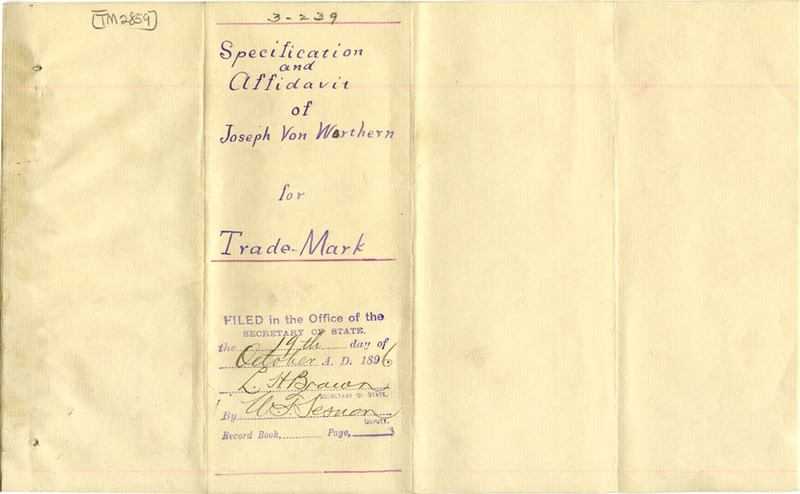 [TM2859]
3-239
Specification
and
Affidavit
of
Joseph Von Worthern
for
Trade-Mark
FILED in the Office of the
SECRETARY OF STATE.
the 19th day of
October A. D. 1896
L. H Brown
SECRETARY OF STATE.
By W. T. Sesnon
DEPUTY.
Record Book, Page,